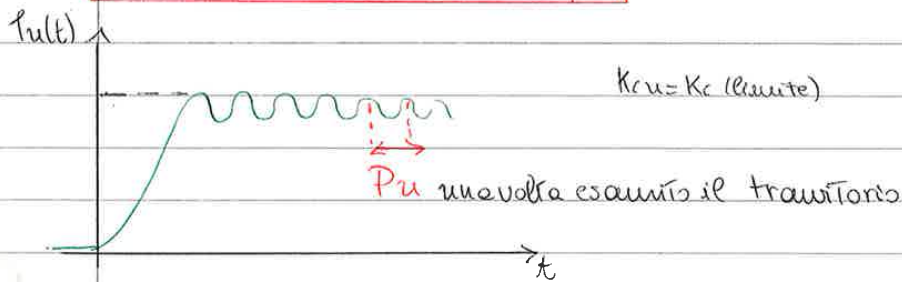 Tu(t)
Kcu = Kc (limite)
Pu una volta esaurito il transitorio
t